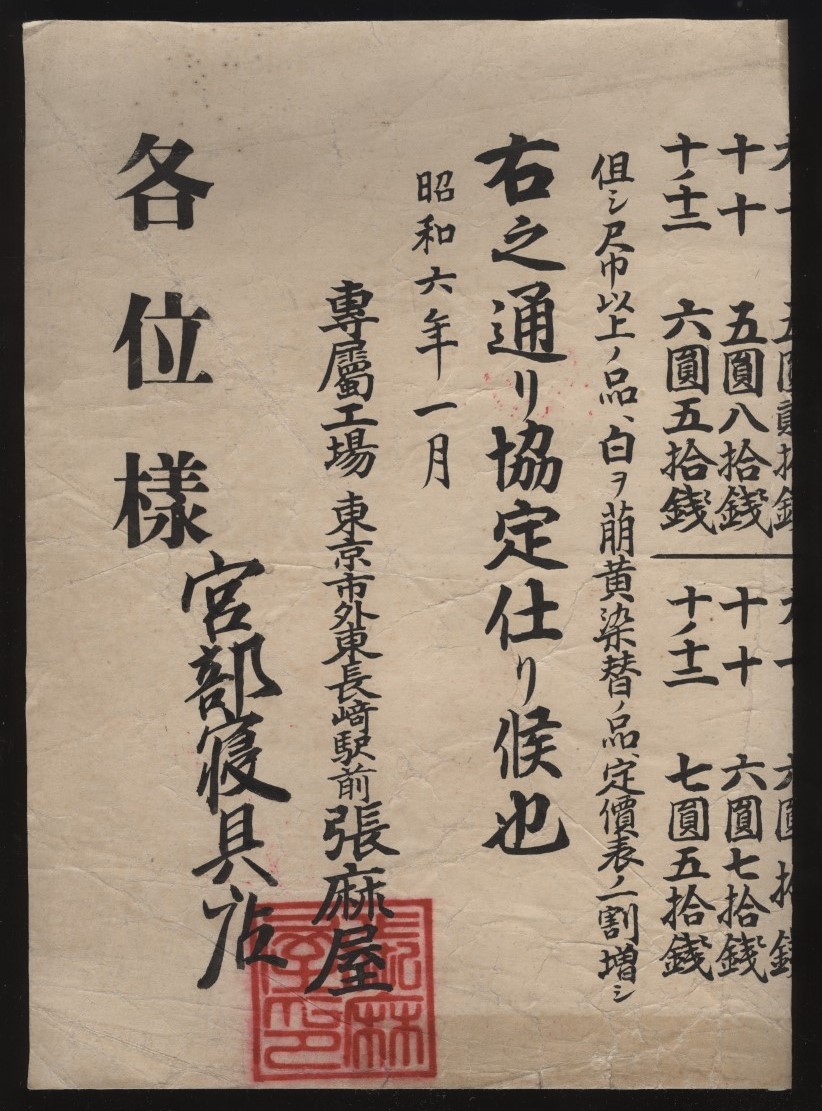 五圓貳拾錢
十十 五圓八拾錢
十ノ十二 六圓五拾錢
十十 六圓七拾錢
十ノ十二 七圓五拾錢
但シ尺巾以上ノ品、白ヲ萠黄染替ノ品、定價表ノ一割増シ
右之通リ協定仕リ候也
昭和六年一月
專屬工場 東京市外東長﨑駅前 張麻屋
宮部寝具店
各位様
張麻屋印